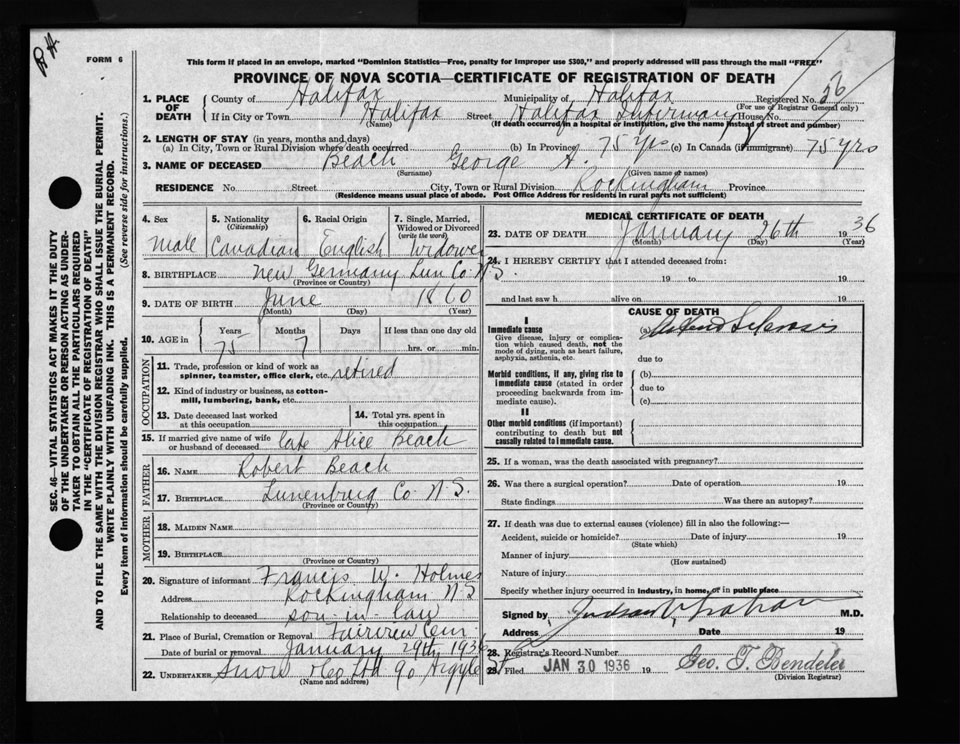 R H
FORM 6
This form if placed in an envelope, marked "Dominion Statistics—Free, penalty for improper use $300," and properly addressed will pass through the mail "FREE"
PROVINCE OF NOVA SCOTIA—CERTIFICATE OF REGISTRATION OF DEATH
SEC. 46—VITAL STATISTICS ACT MAKES IT THE DUTY
OF THE UNDERTAKER OR PERSON ACTING AS UNDER-
TAKER TO OBTAIN ALL THE PARTICULARS REQUIRED
IN THE "CERTIFICATE OF REGISTRATION OF DEATH"
AND TO FILE THE SAME WITH THE DIVISION REGISTRAR WHO SHALL ISSUE THE BURIAL PERMIT.
WRITE PLAINLY WITH UNFADING INK. THIS IS A PERMANENT RECORD.
Every item of information should be carefully supplied. (See reverse side for instructions.)
1. PLACE OF DEATH County of Halifax Municipality of Halifax Registered No. 56
(For use of Registrar General only)
If in City or Town Halifax Street Halifax Infirmary House No.
(Name) (If death occurred in a hospital or institution, give the name instead of street and number)
2. LENGTH OF STAY (in years, months and days)
(a) In City, Town or Rural Division where death occurred (b) In Province 75 yrs (c) In Canada (if immigrant) 75 yrs
3. NAME OF DECEASED Beach George A.
(Surname) (Given name or names)
RESIDENCE No. Street City, Town or Rural Division Rockingham Province
(Residence means usual place of abode. Post Office Address for residents in rural parts not sufficient)
4. Sex 5. Nationality (Citizenship) 6. Racial Origin 7. Single, Married, Widowed or Divorced (write the word)
male Canadian English widower
8. BIRTHPLACE New Germany Lun Co. N.S.
(Province or Country)
9. DATE OF BIRTH June 1860
(Month) (Day) (Year)
10. AGE in Years Months Days If less than one day old
75 7 hrs. or min.
OCCUPATION
11. Trade, profession or kind of work as spinner, teamster, office clerk, etc. retired
12. Kind of industry or business, as cotton-mill, lumbering, bank, etc.
13. Date deceased last worked at this occupation
14. Total yrs. spent in this occupation
15. If married give name of wife or husband of deceased late Alice Beach
FATHER
16. NAME Robert Beach
17. BIRTHPLACE Lunenburg Co. N.S.
(Province or Country)
MOTHER
18. MAIDEN NAME
19. BIRTHPLACE
(Province or Country)
20. Signature of informant Francis W. Holmes
Address Rockingham N S
Relationship to deceased son-in-law
21. Place of Burial, Cremation or Removal Fairview Cem.
Date of burial or removal January 29th 1936
22. UNDERTAKER Snow & Co Ltd 90 Argyle
(Name and address)
MEDICAL CERTIFICATE OF DEATH
23. DATE OF DEATH January 26th 1936
(Month) (Day) (Year)
24. I HEREBY CERTIFY that I attended deceased from:
19 to 19
and last saw h alive on 19
CAUSE OF DEATH
I
Immediate cause
Give disease, injury or complication which caused death, not the mode of dying, such as heart failure, asphyxia, asthenia, etc.
(a)
due to
Morbid conditions, if any, giving rise to immediate cause (stated in order proceeding backwards from immediate cause).
(b)
due to
(c)
II
Other morbid conditions (if important) contributing to death but not causally related to immediate cause.
25. If a woman, was the death associated with pregnancy?
26. Was there a surgical operation? Date of operation 19
State findings Was there an autopsy?
27. If death was due to external causes (violence) fill in also the following:—
Accident, suicide or homicide? Date of injury 19
(State which)
Manner of injury
(How sustained)
Nature of injury
Specify whether injury occurred in Industry, in home, or in public place
Signed by M.D.
Address Date 19
28. Registrar's Record Number
29. Filed JAN 30 1936 19 Geo. T. Bendeler
(Division Registrar)